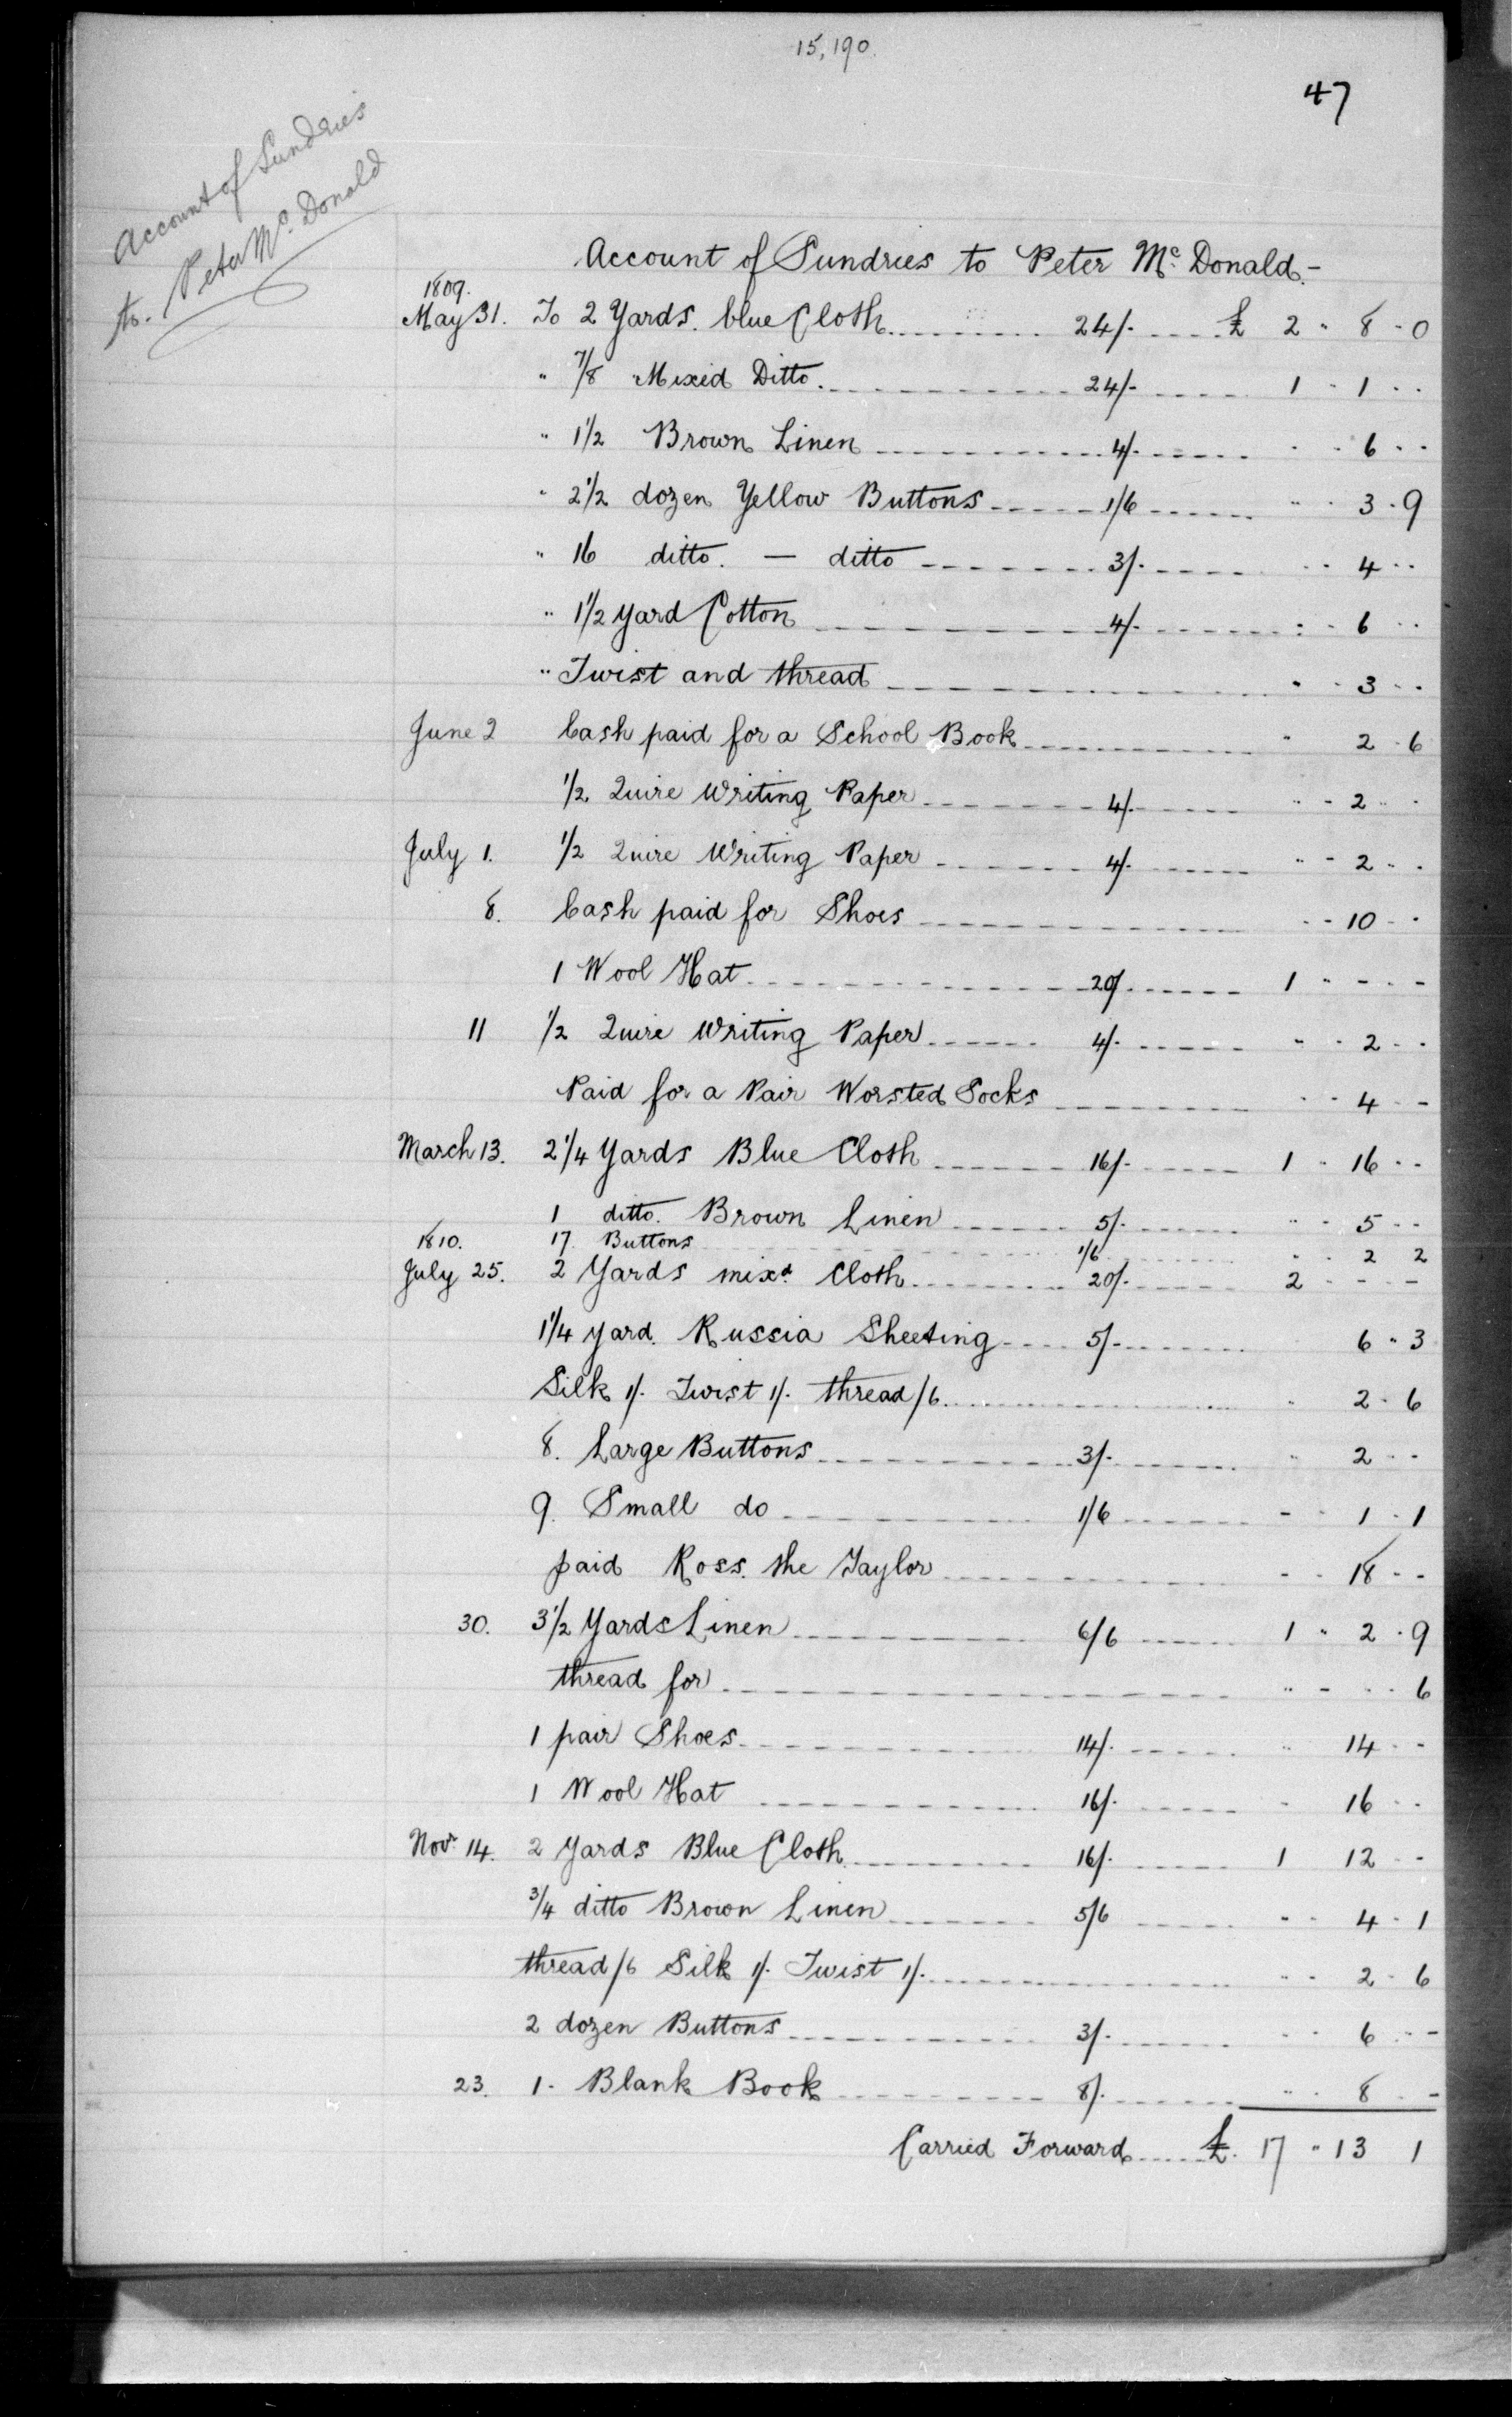 15,190.
47
Account of Sundries
to. Peter Mc. Donald
Account of Sundries to Peter Mc. Donald.-
1809.
May 31. To 2 Yards. blue Cloth 24/- £ 2 " 8 - 0
" 7/8 Mixed Ditto. 24/- 1 " 1 - -
" 1 1/2 Brown Linen 4/- - - 6 - -
" 2 1/2 dozen Yellow Buttons 1/6 " - 3 - 9
" 16 ditto. — ditto 3/- - - 4 - -
" 1 1/2 yard Cotton 4/- : - 6 - -
" Twist and thread " - 3 - -
June 2 Cash paid for a School Book " 2 - 6
1/2 Quire Writing Paper 4/- " - 2 - -
July 1. 1/2 Quire Writing Paper 4/- " - 2 - -
8. Cash paid for Shoes - - 10 - -
1 Wool Hat 20/- 1 " - - -
11 1/2 Quire Writing Paper 4/- " - 2 - -
Paid for a Pair Worsted Socks - - 4 - -
March 13. 2 1/4 Yards Blue Cloth 16/- 1 - 16 - -
1 ditto. Brown Linen 5/- " - 5 - -
1810. 17 Buttons 1/6 " - 2 2
July 25. 2 Yards mixd. Cloth 20/- 2 - - - -
1 1/4 yard. Russia Sheeting 5/- 6 " 3
Silk 1/- Twist 1/- thread /6 - 2 - 6
8. Large Buttons 3/- " 2 - -
9. Small do 1/6 - - 1 - 1
paid Ross. the Taylor - - 18 - -
30. 3 1/2 Yards Linen 6/6 1 " 2 - 9
thread for " - - - 6
1 pair Shoes 14/- " 14 - -
1 Wool Hat 16/- - 16 - -
Novr 14. 2 Yards Blue Cloth 16/- 1 12 - -
3/4 ditto Brown Linen 5/6 - - 4 - 1
thread /6 Silk 1/- Twist 1/- - - 2 - 6
2 dozen Buttons 3/- - - 6 - -
23. 1. Blank Book 8/- " - 8 - -
Carried Forward £. 17 " 13 1